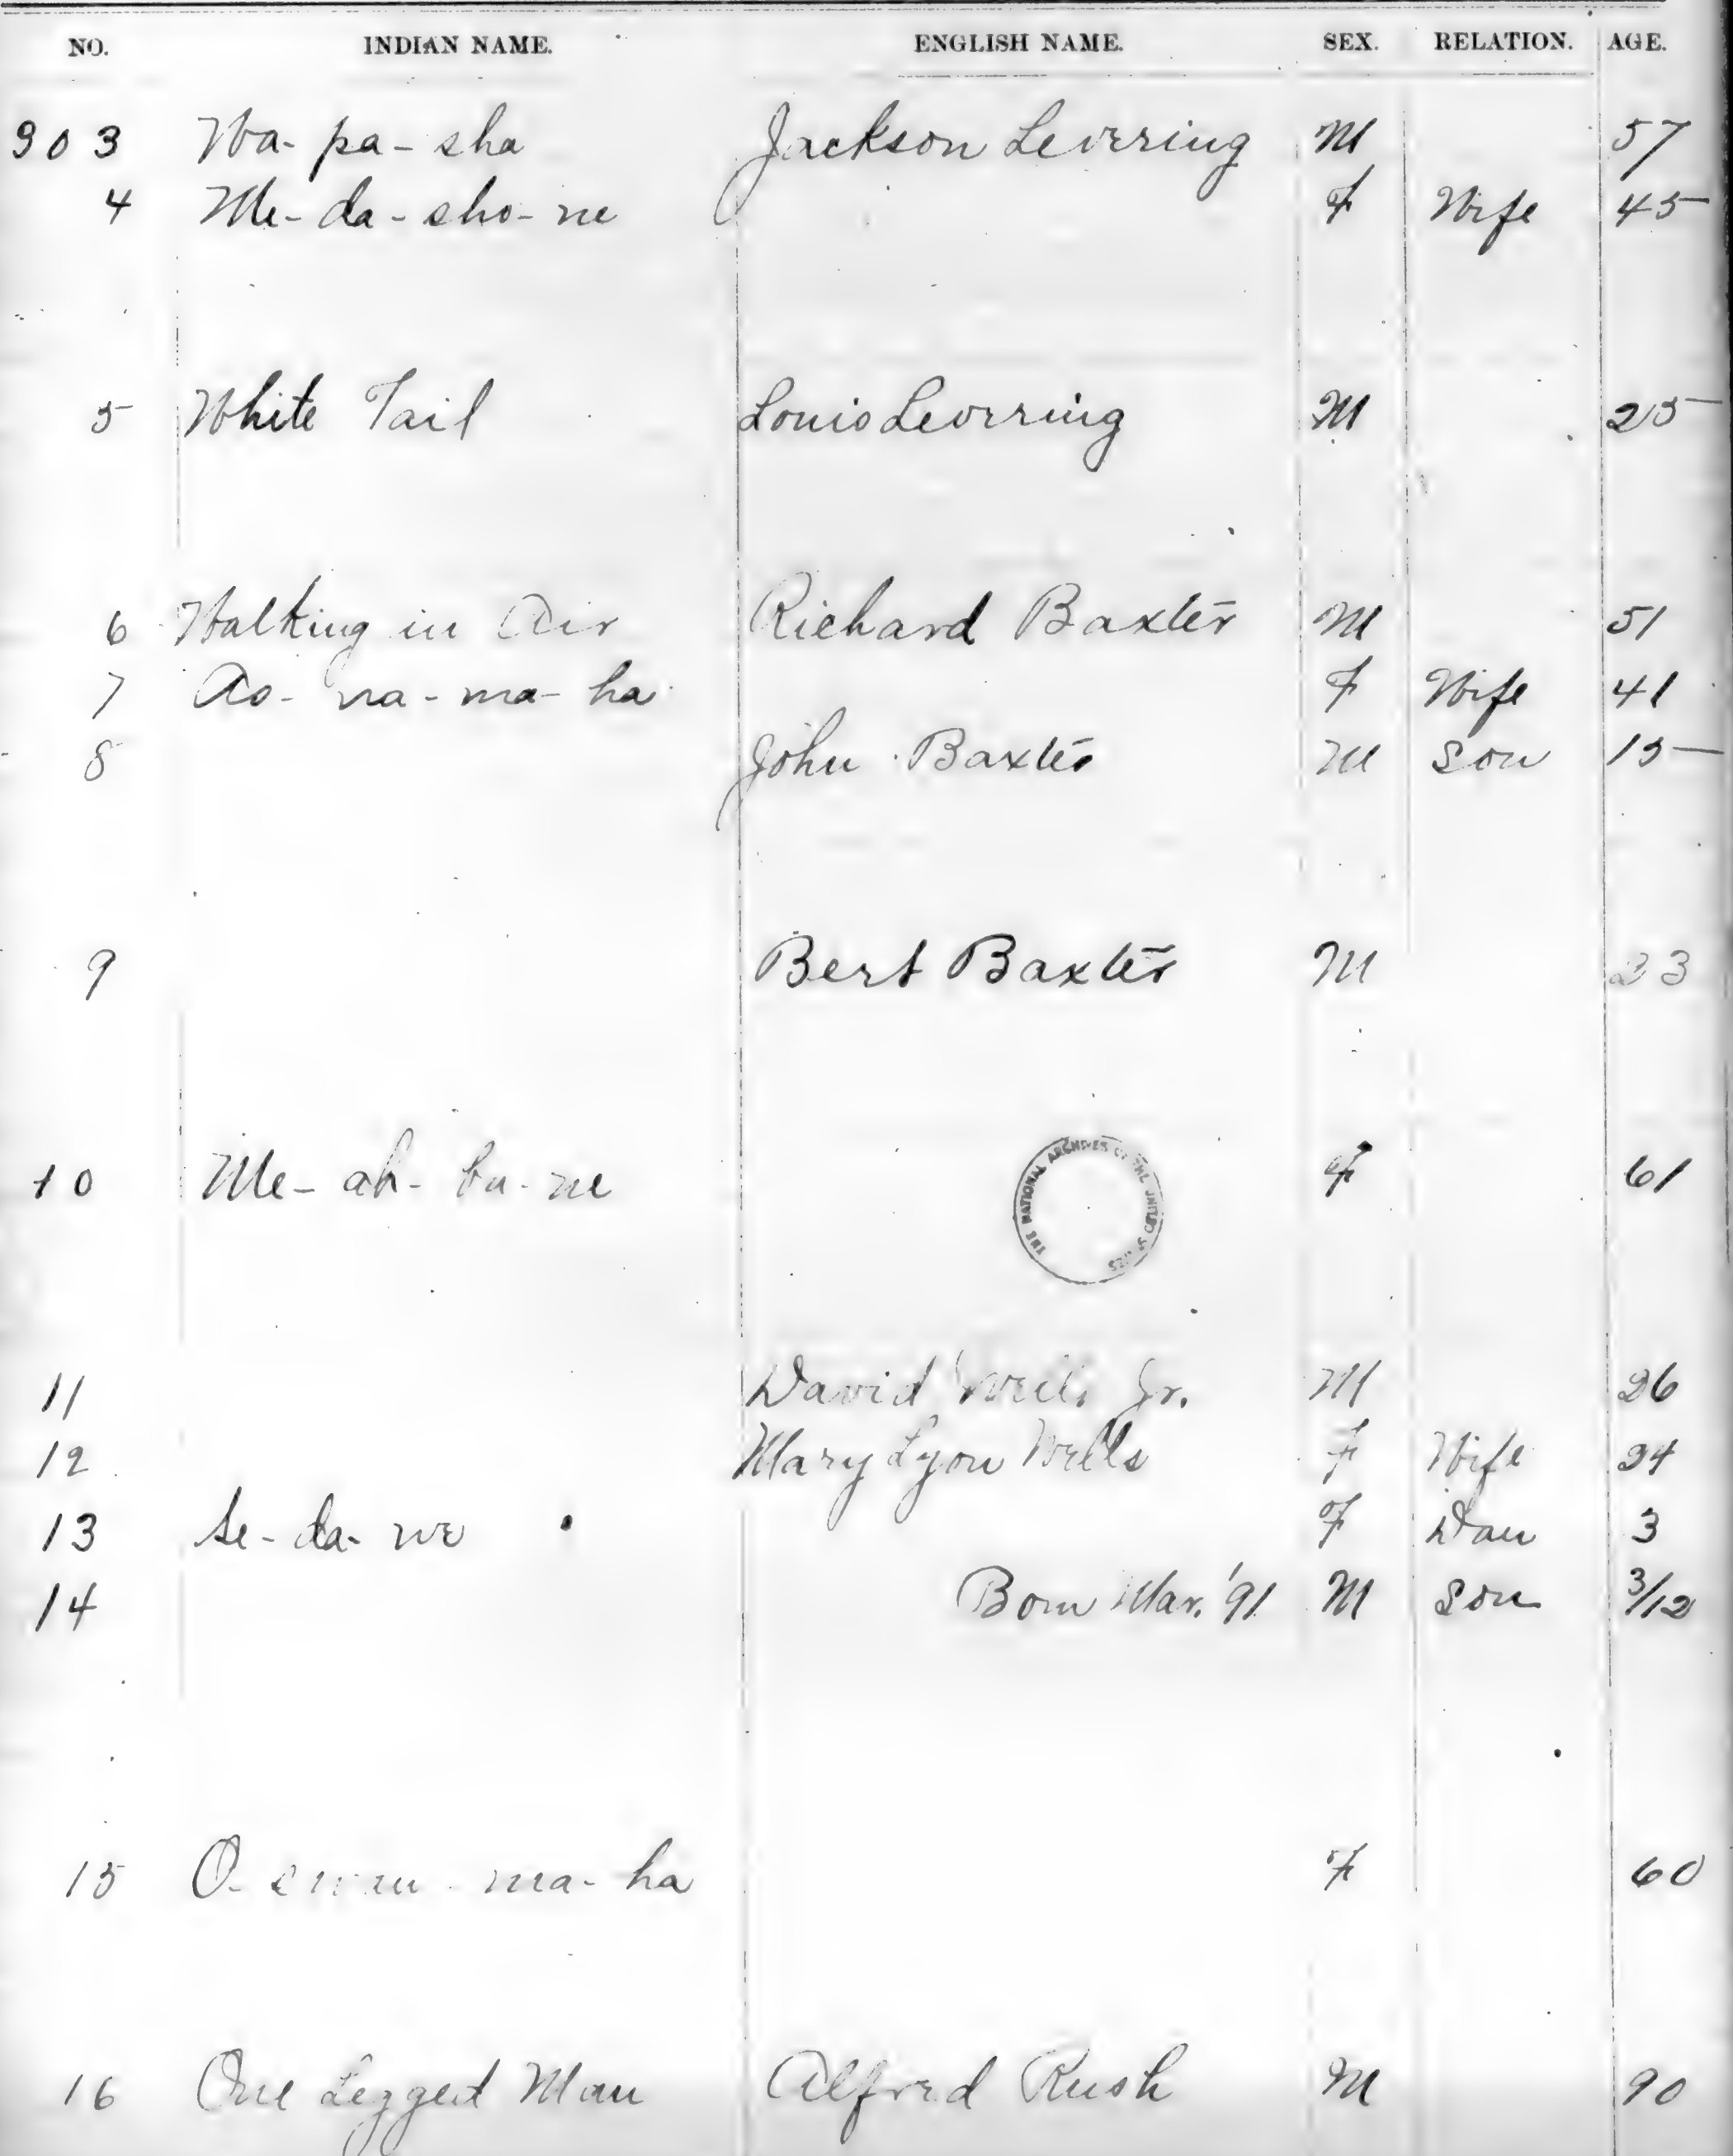 NO. INDIAN NAME. ENGLISH NAME. SEX. RELATION. AGE.
903 Wa-pa-sha Jackson Levering M 57
4 Me-da-sho-ne F Wife 45
5 White Tail Louis Levering M 25
6 Walking in Air Richard Baxter M 51
7 Ao-na-ma-ha F Wife 41
8 John Baxter M Son 15
9 Bert Baxter M 23
10 Me-ah-bu-ne F 61
THE NATIONAL ARCHIVES OF THE UNITED STATES
11 David Wells Jr. M 26
12 Mary Lyon Wells F Wife 24
13 Se-da-we F Dau 3
14 Born Mar. '91 M Son 3/12
15 O- ma-ha F 60
16 One Legged Man Alfred Rush M 90